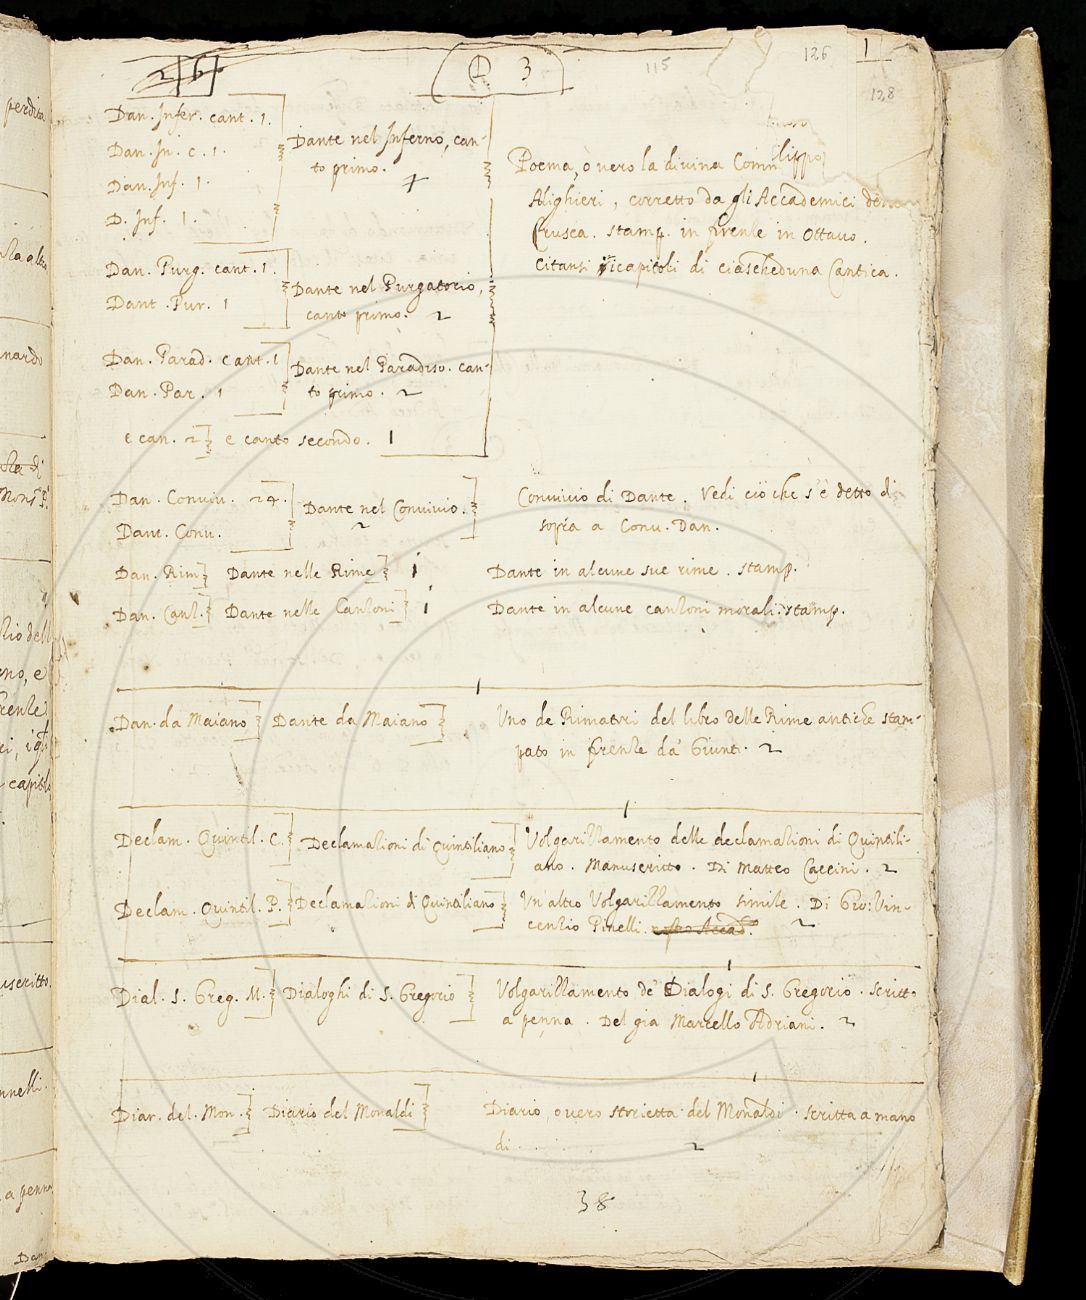 26
D 3
115
126
1
128
Dan. Infer. cant. 1.
Dan. In. c. 1.
Dan. Inf. 1.
D. Inf. 1.
Dante nel Inferno, can-
to primo.
Poema, ò vero la divina Com
Alighieri, corretto da gli Accademici
Crusca. stamp. in firenze in Ottavo.
Citansi i capitoli di ciascheduna Cantica.
Dan. Purg. cant. 1.
Dant. Pur. 1
Dante nel Purgatorio,
canto primo. 2
Dan. Parad. cant. 1
Dan. Par. 1
Dante nel Paradiso. can-
to primo. 2
e can. 2 e canto secondo. 1
Dan. Conviv. 24.
Dant. Conv.
Dante nel Convivio.
2
Convivio di Dante. Vedi ciò che s'è detto di
sopra a Conv. Dan.
Dan. Rim Dante nelle Rime 1 Dante in alcune sue rime. stamp.
Dan. Canz. Dante nelle Canzoni 1 Dante in alcune canzoni morali. stamp.
1
Dan. da Maiano Dante da Maiano Uno de Rimatori del libro delle Rime antiche stam-
pato in firenze da' Giunti. 2
1
Declam. Quintil. C. Declamazioni di Quintiliano Volgarizzamento delle declamazioni di Quintili-
ano. Manuscritto. Di Matteo Caccini. 2
Declam. Quintil. P. Declamazioni di Quintiliano Un altro Volgarizzamento simile. Di Gio: Vin-
cenzio Pinelli. 2
1
Dial. S. Greg. M. Dialoghi di S. Gregorio Volgarizzamento de' Dialogi di S. Gregorio. scritto
a penna. Del già Marcello Adriani. 2
1
Diar. del. Mon. Diario del Monaldi Diario, overo storietta del Monaldi. scritta a mano
di . . . . 2
38